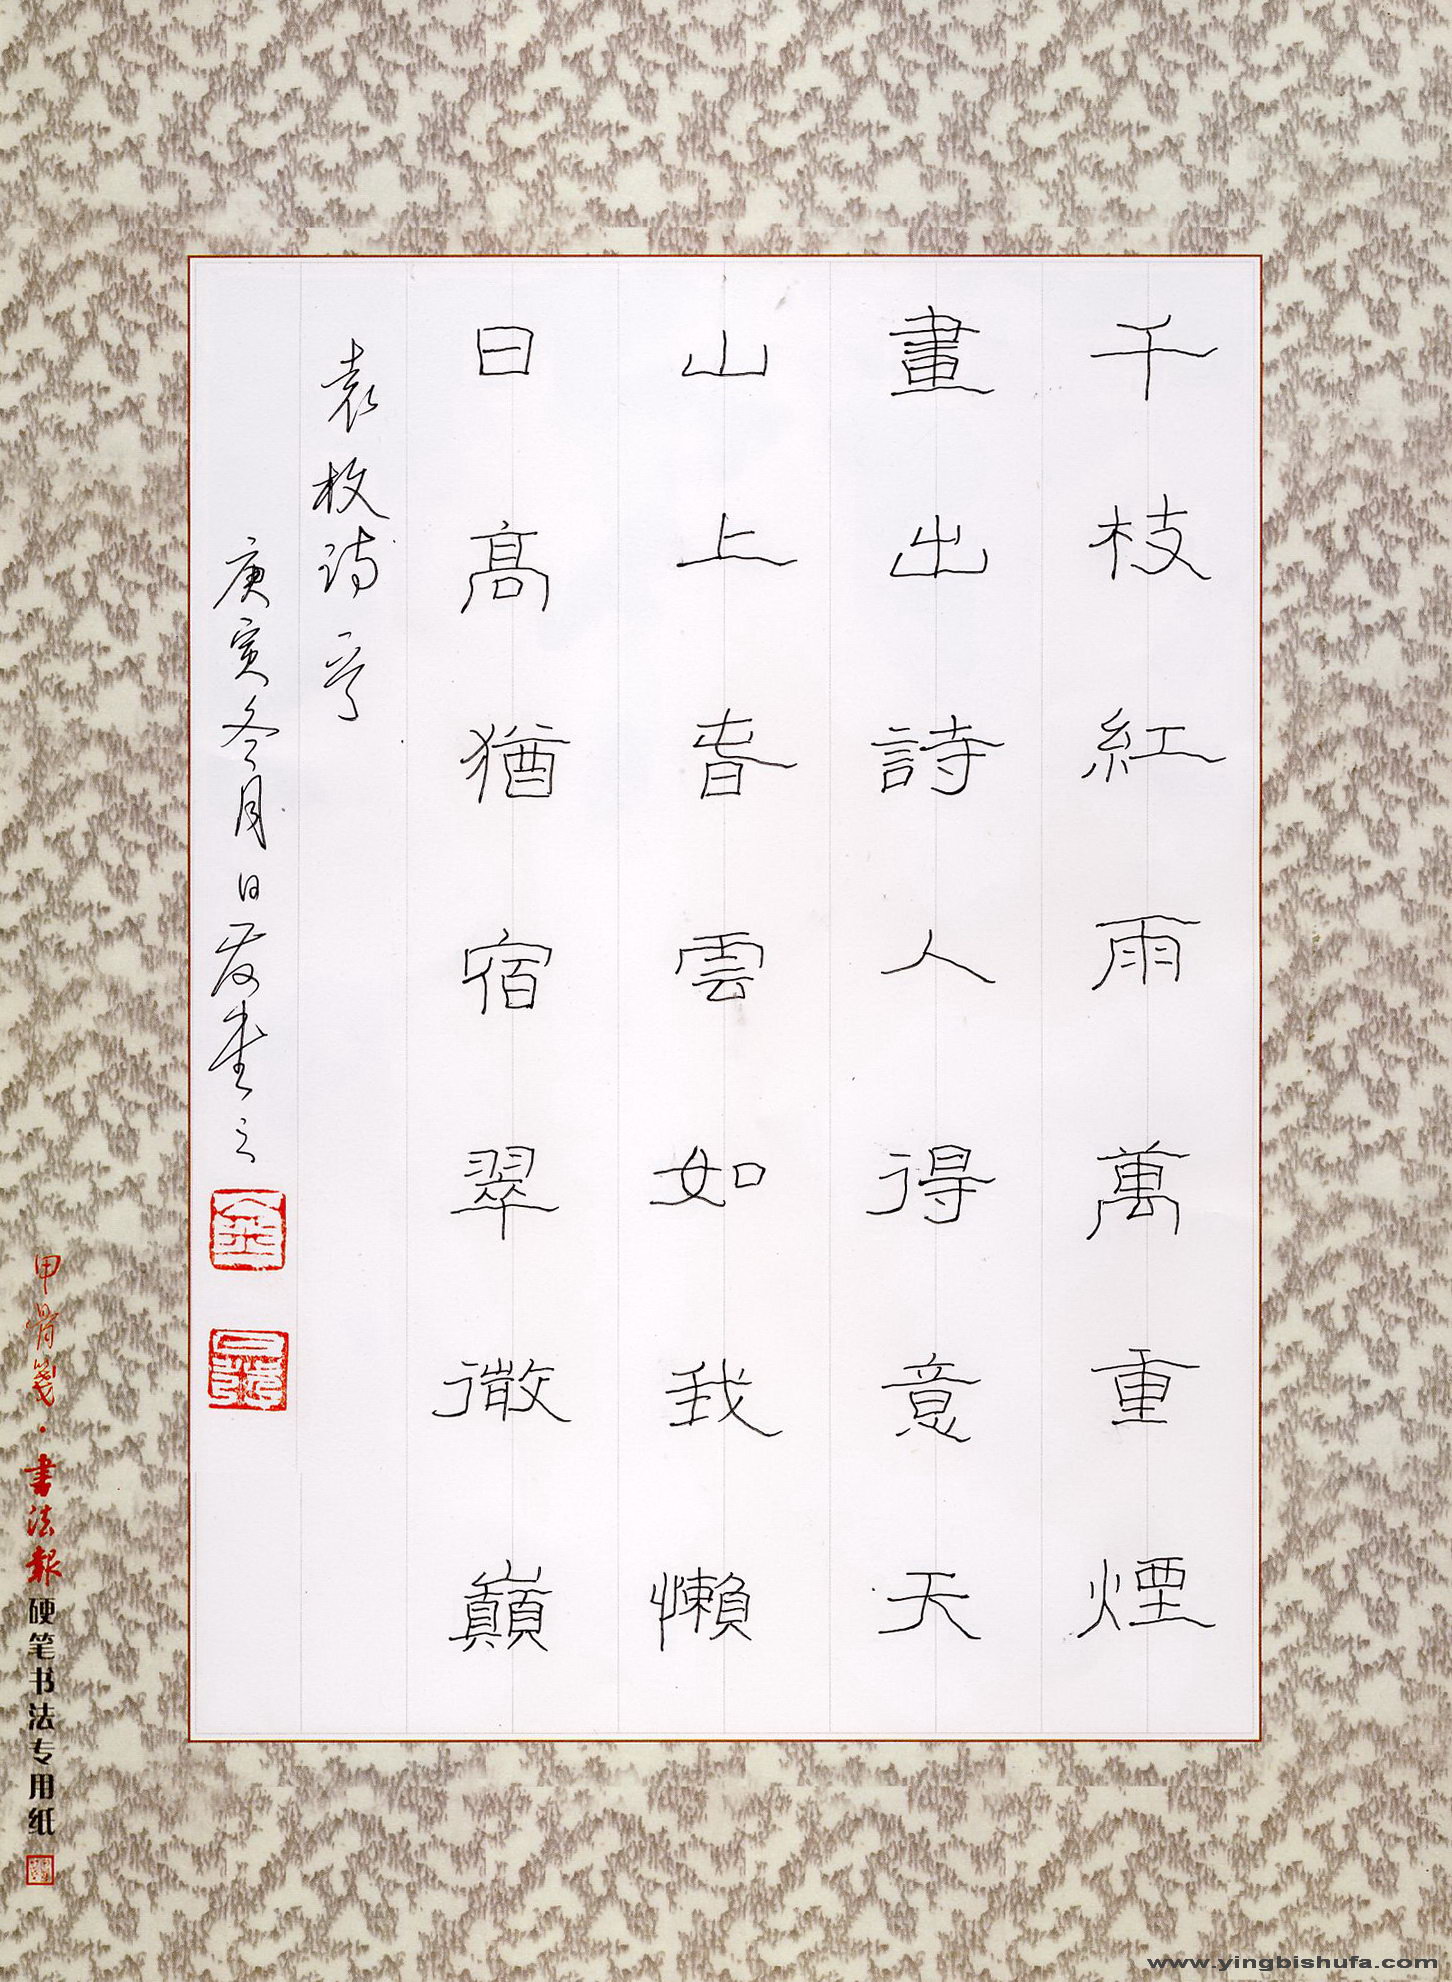 千枝紅雨萬重煙
畫出詩人得意天
山上春雲如我懶
日高猶宿翠微巔
袁枚詩一首
庚寅冬月日發書之
甲骨箋·書法報硬笔书法专用纸
www.yingbishufa.com